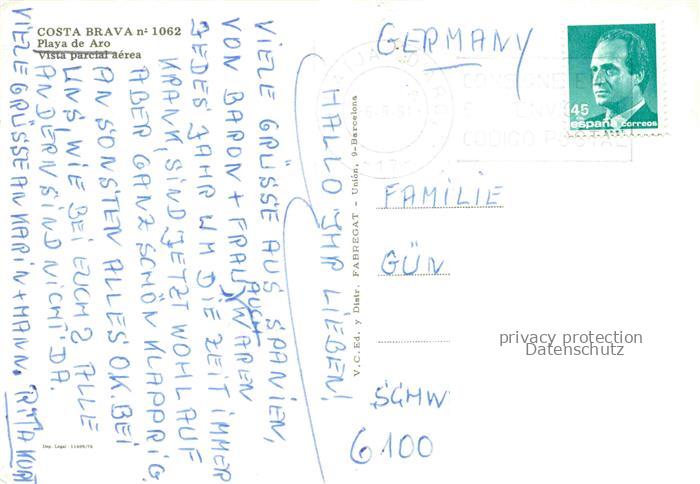 COSTA BRAVA nº 1062
Playa de Aro
Vista parcial aérea
HALLO IHR LIEBEN!
VIELE GRÜSSE AUS SPANIEN,
VON BARON + FRAU, WAREN
AUCH
JEDES JAHR UM DIE ZEIT IMMER
KRANK, SIND JETZT WOHL AUF
ABER GANZ SCHÖN KLAPPRIG.
ANSONSTEN ALLES O.K. BEI
UNS, WIE BEI EUCH? ALLE
ANDERN SIND NICHT DA.
VIELE GRÜSSE AN KARIN + MANN. RITA
Dep. Legal
V. C. Ed. y Distr. FABREGAT - Unión, 9-Barcelona
GERMANY
45
españa correos
CODIGO POSTAL
FAMILIE
GÜN
SCHW
6100
privacy protection
Datenschutz